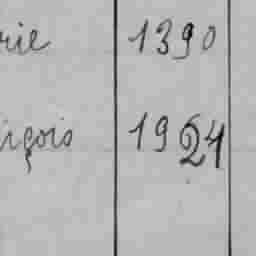 rie 1390
nçois 1924